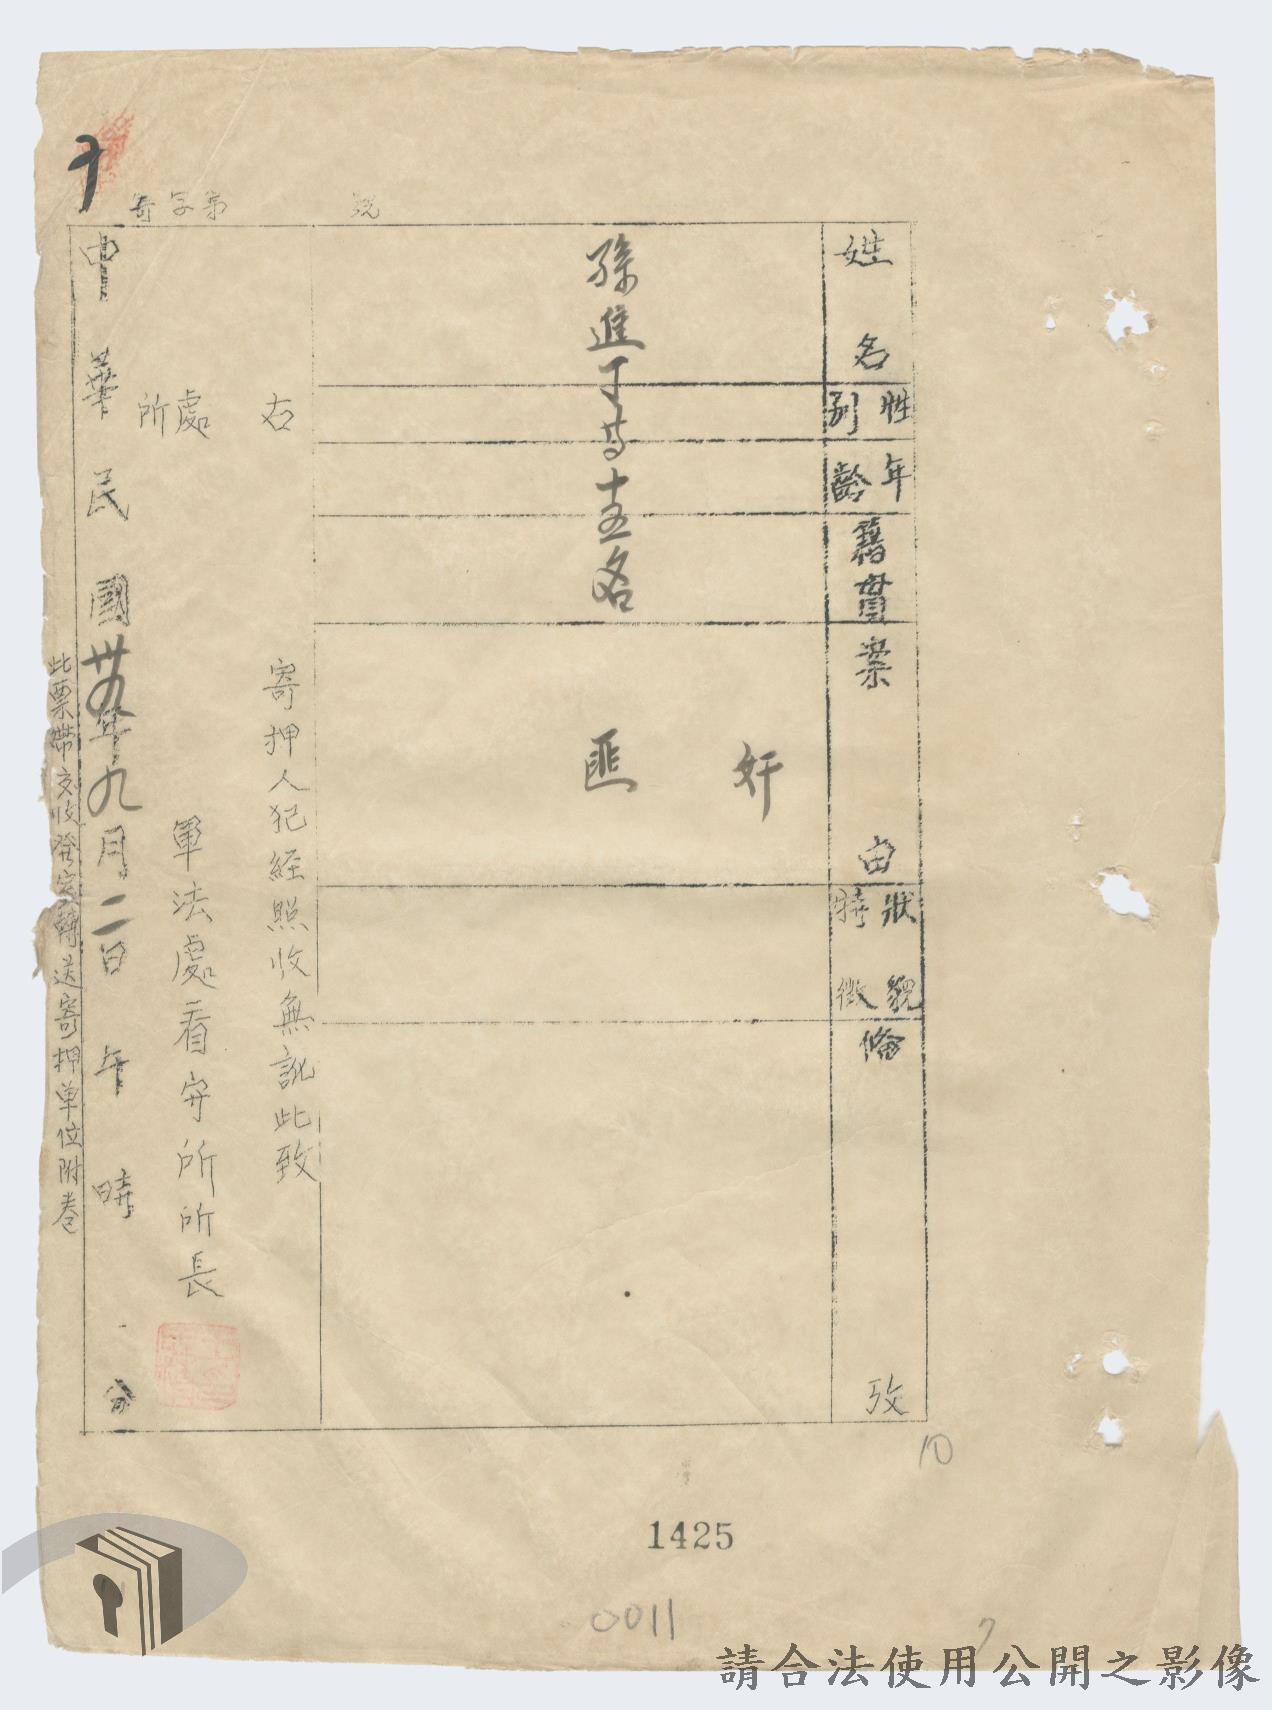 寄字第　　號
姓名
性別
年齡
籍貫
案由
狀貌
特徵
備攷
孫進丁等十五名
奸
匪
右
寄押人犯經照收無訛此致
處
所
軍法處看守所所長
中華民國卅九年九月二日　午　時　分
此票帶交收發室轉送寄押單位附卷
10
1425
0011
7
請合法使用公開之影像